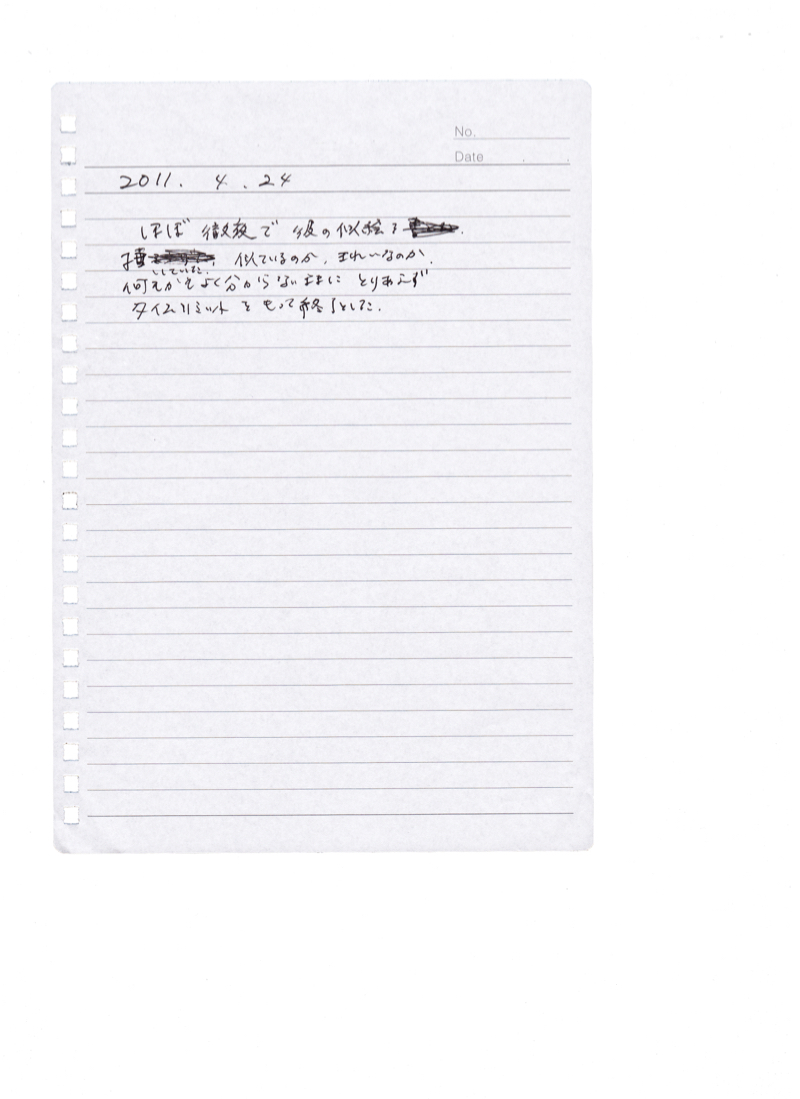 No.
Date
2011. 4. 24
ほぼ徹夜で彼の似絵を
描 似ているのか、きれいなのか、
していた。
何もかもよく分からないままに とりあえず
タイムリミットをもって終りとした。